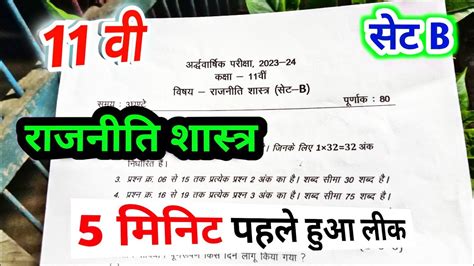 11 वी
सेट B
अर्द्धवार्षिक परीक्षा, 2023-24
कक्षा - 11वीं
विषय – राजनीति शास्त्र (सेट-B)
पूर्णांक : 80
राजनीति शास्त्र
जिनके लिए 1×32=32 अंक
निर्धारित है।
3. प्रश्न क्र. 06 से 15 तक प्रत्येक प्रश्न 2 अंक का है। शब्द सीमा 30 शब्द है।
4. प्रश्न क्र. 16 से 19 तक प्रत्येक प्रश्न 3 अंक का है। शब्द सीमा 75 शब्द है।
5 मिनिट पहले हुआ लीक
किस दिन लागू किया गया ?